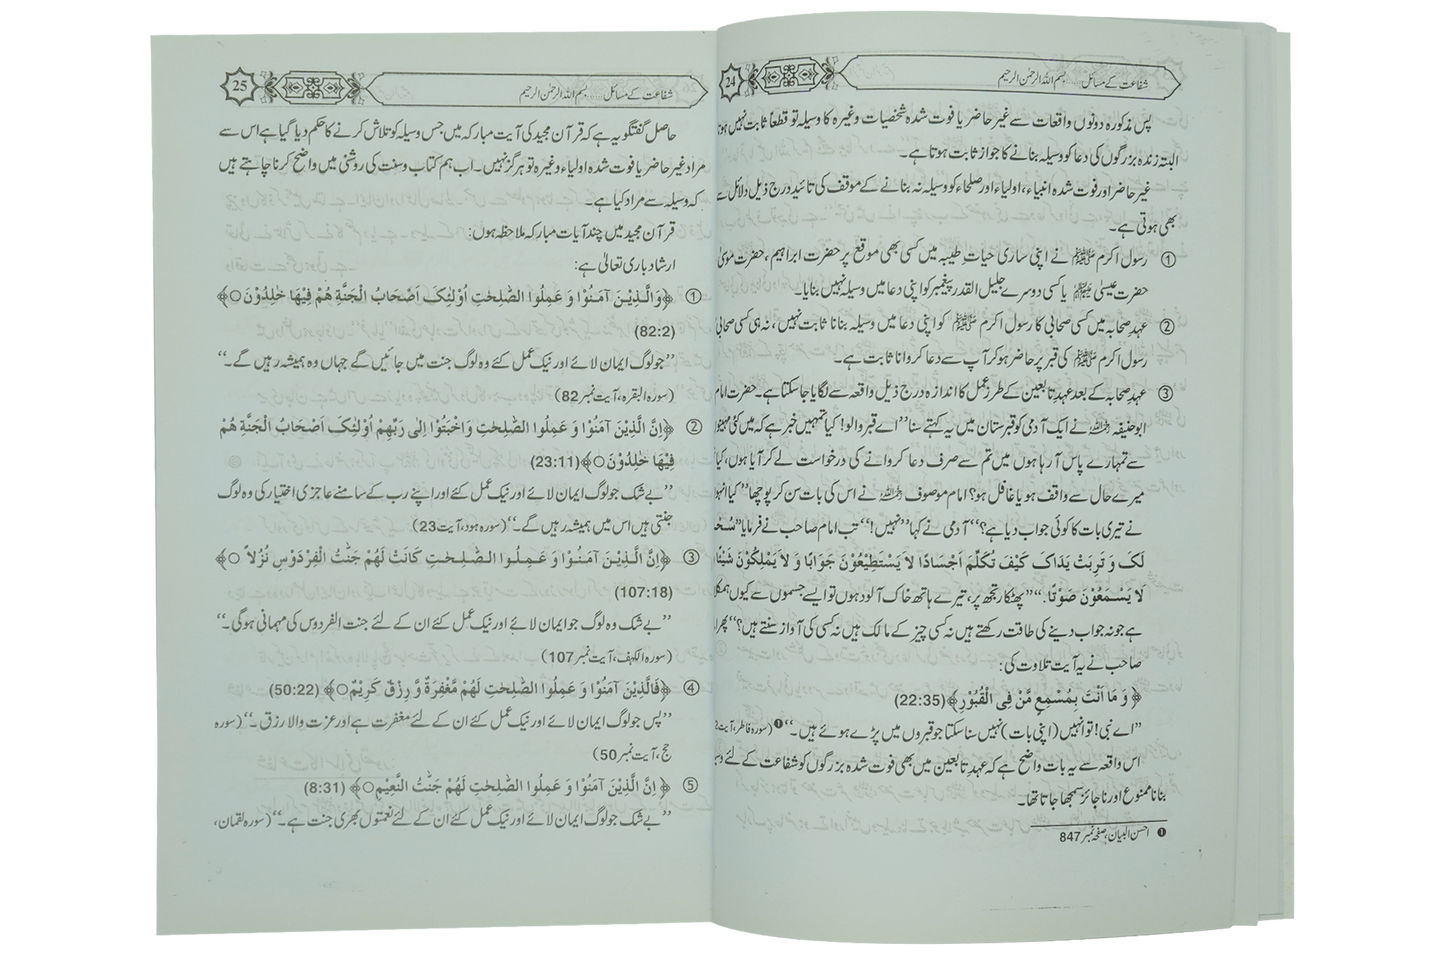 شفاعت کے مسائل ..... بسم اللہ الرحمٰن الرحیم
24
پس مذکورہ دونوں واقعات سے غیر حاضر یا فوت شدہ شخصیات وغیرہ کا وسیلہ تو قطعاً ثابت نہیں ہوتا
البتہ زندہ بزرگوں کی دعا کو وسیلہ بنانے کا جواز ثابت ہوتا ہے۔
غیر حاضر اور فوت شدہ انبیاء، اولیاء اور صلحاء کو وسیلہ نہ بنانے کے موقف کی تائید درج ذیل دلائل سے
بھی ہوتی ہے۔
① رسول اکرم ﷺ نے اپنی ساری حیات طیبہ میں کسی بھی موقع پر حضرت ابراہیم، حضرت موسیٰ
حضرت عیسیٰ ﷺ یا کسی دوسرے جلیل القدر پیغمبر کو اپنی دعا میں وسیلہ نہیں بنایا۔
② عہد صحابہ میں کسی صحابی کا رسول اکرم ﷺ کو اپنی دعا میں وسیلہ بنانا ثابت نہیں، نہ ہی کسی صحابی
رسول اکرم ﷺ کی قبر پر حاضر ہو کر آپ سے دعا کروانا ثابت ہے۔
③ عہد صحابہ کے بعد عہد تابعین کے طرز عمل کا اندازہ درج ذیل واقعہ سے لگایا جا سکتا ہے۔ حضرت امام
ابوحنیفہ رحمہ اللہ نے ایک آدمی کو قبرستان میں یہ کہتے سنا ’’اے قبر والو! کیا تمہیں خبر ہے کہ میں کئی مہینوں
سے تمہارے پاس آ رہا ہوں میں تم سے صرف دعا کروانے کی درخواست لے کر آیا ہوں، کیا
میرے حال سے واقف ہو یا غافل ہو؟ امام موصوف رحمہ اللہ نے اس کی بات سن کر پوچھا ’’کیا انہوں
نے تیری بات کا کوئی جواب دیا ہے؟‘‘ آدمی نے کہا ’’نہیں!‘‘ تب امام صاحب نے فرمایا ’’سُحْقًا
لَکَ وَ تَرِبَتْ یَدَاکَ کَیْفَ تُکَلِّمُ اَجْسَادًا لاَ یَسْتَطِیْعُوْنَ جَوَابًا وَ لاَ یَمْلِکُوْنَ شَیْئًا
لاَ یَسْمَعُوْنَ صَوْتًا.‘‘ ’’پھٹکار تجھ پر، تیرے ہاتھ خاک آلود ہوں تو ایسے جسموں سے کیوں ہمکلام
ہے جو نہ جواب دینے کی طاقت رکھتے ہیں نہ کسی چیز کے مالک ہیں نہ کسی کی آواز سنتے ہیں؟‘‘ پھر
صاحب نے یہ آیت تلاوت کی:
﴿ وَ مَا اَنْتَ بِمُسْمِعٍ مَّنْ فِی الْقُبُوْرِ ﴾(22:35)
’’اے نبی! تو انہیں (اپنی بات) نہیں سنا سکتا جو قبروں میں پڑے ہوئے ہیں۔‘‘❶ (سورہ فاطر، آیت
اس واقعہ سے یہ بات واضح ہے کہ عہد تابعین میں بھی فوت شدہ بزرگوں کو شفاعت کے لئے
بنانا ممنوع اور ناجائز سمجھا جاتا تھا۔
❶ احسن البیان، صفحہ نمبر 847
شفاعت کے مسائل ..... بسم اللہ الرحمٰن الرحیم
25
حاصل گفتگو یہ ہے کہ قرآن مجید کی آیت مبارکہ میں جس وسیلہ کو تلاش کرنے کا حکم دیا گیا ہے اس سے
مراد غیر حاضر یا فوت شدہ اولیاء وغیرہ تو ہرگز نہیں۔ اب ہم کتاب وسنت کی روشنی میں واضح کرنا چاہتے ہیں
کہ وسیلہ سے مراد کیا ہے۔
قرآن مجید میں چند آیات مبارکہ ملاحظہ ہوں:
ارشاد باری تعالیٰ ہے:
① ﴿وَالَّذِیْنَ آمَنُوْا وَ عَمِلُوا الصّٰلِحٰتِ اُوْلٰئِکَ اَصْحَابُ الْجَنَّةِ هُمْ فِیْهَا خٰلِدُوْنَ○﴾
(82:2)
’’جو لوگ ایمان لائے اور نیک عمل کئے وہ لوگ جنت میں جائیں گے جہاں وہ ہمیشہ رہیں گے۔‘‘
(سورہ البقرہ، آیت نمبر 82)
② ﴿اِنَّ الَّذِیْنَ آمَنُوْا وَ عَمِلُوا الصّٰلِحٰتِ وَاخْبَتُوْا اِلٰی رَبِّهِمْ اُوْلٰئِکَ اَصْحَابُ الْجَنَّةِ هُمْ
فِیْهَا خٰلِدُوْنَ○﴾(23:11)
’’بے شک جو لوگ ایمان لائے اور نیک عمل کئے اور اپنے رب کے سامنے عاجزی اختیار کی وہ لوگ
جنتی ہیں اس میں ہمیشہ رہیں گے۔‘‘ (سورہ ہود، آیت 23)
③ ﴿اِنَّ الَّذِیْنَ آمَنُوْا وَ عَمِلُوا الصّٰلِحٰتِ کَانَتْ لَهُمْ جَنّٰتُ الْفِرْدَوْسِ نُزُلاً ○﴾
(107:18)
’’بے شک وہ لوگ جو ایمان لائے اور نیک عمل کئے ان کے لئے جنت الفردوس کی مہمانی ہوگی۔‘‘
(سورہ الکہف، آیت نمبر 107)
④ ﴿فَالَّذِیْنَ آمَنُوْا وَ عَمِلُوا الصّٰلِحٰتِ لَهُمْ مَّغْفِرَةٌ وَّ رِزْقٌ کَرِیْمٌ○﴾ (50:22)
’’پس جو لوگ ایمان لائے اور نیک عمل کئے ان کے لئے مغفرت ہے اور عزت والا رزق۔‘‘ (سورہ
حج، آیت نمبر 50)
⑤ ﴿ اِنَّ الَّذِیْنَ آمَنُوْا وَ عَمِلُوا الصّٰلِحٰتِ لَهُمْ جَنّٰتُ النَّعِیْمِ○﴾ (8:31)
’’بے شک جو لوگ ایمان لائے اور نیک عمل کئے ان کے لئے نعمتوں بھری جنت ہے۔‘‘ (سورہ لقمان،